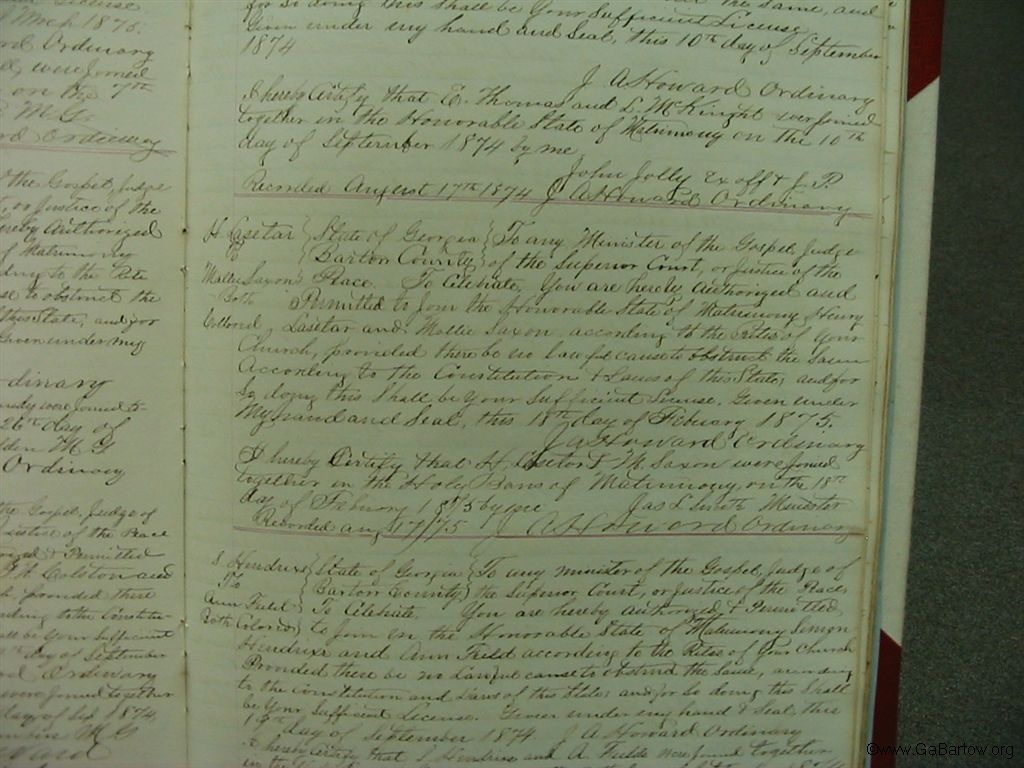 License
March 1875.
rd Ordinary
were Joined
on the 7th
M. G.
rd Ordinary
the Gospel, Judge
or Justice of the
hereby Authorized
of Matrimony
to the
to obstruct the
this State, and for
Given under my
dinary
were Joined to
26th day of
M. G.
Ordinary
the Gospel, Judge of
Justice of the Peace
& Permitted
Colston and
provided there
to the Constitu
be your Sufficient
day of September
Ordinary
were joined together
day of Sept 1874
M G
ward
for So doing this Shall be your Sufficient License
the Same, and
Given under my hand and Seal, this 10th day of September
1874
J A Howard Ordinary
I hereby Certify that E. Thomas and L. McKnight were Joined
together in the Honorable State of Matrimony on the 10th
day of September 1874 by me
John Jolly Ex off & J. P.
Recorded August 17th 1874 J A Howard Ordinary
H Lasetar
To
Mollie Saxon
Both
Colored
State of Georgia } To any Minister of the Gospel, Judge
Bartow County } of the Superior Court, or Justice of the
Peace. To Celebrate. You are hereby authorized and
Permitted to Join the Honorable State of Matrimony Henry
Lasetar and Mollie Saxon according to the Rites of your
Church, provided there be no lawful cause to obstruct the Same
According to the Constitution & Laws of this State, and for
So doing this Shall be your Sufficient License. Given under
My hand and Seal, this 18th day of Febuary 1875.
J A Howard Ordinary
I hereby Certify that H. Lasetor & M. Saxon were Joined
together in the Holy Bans of Matrimony, on the 18th
day of Febuary 1875 by me Jas L Smith Minister
Recorded aug 17/75 J A Howard Ordinary
S Hendrixe
To
Ann Field
Both Colored
State of Georgia } To any minister of the Gospel, Judge of
Bartow County } the Superior Court, or Justice of the Peace
To Celebrate. You are hereby authorized & Permitted
to Join in the Honorable State of Matrimony Simon
Hendrixe and Ann Field according to the Rites of your Church
Provided there be no Lawful cause to obstruct the Same, according
to the Constitution and Laws of this State, and for So doing this Shall
be your Sufficient License. Given under my hand & Seal this
day of September 1874 J A Howard Ordinary
I hereby Certify that S Hendrixe and A Fields were joined together
©www.GaBartow.org